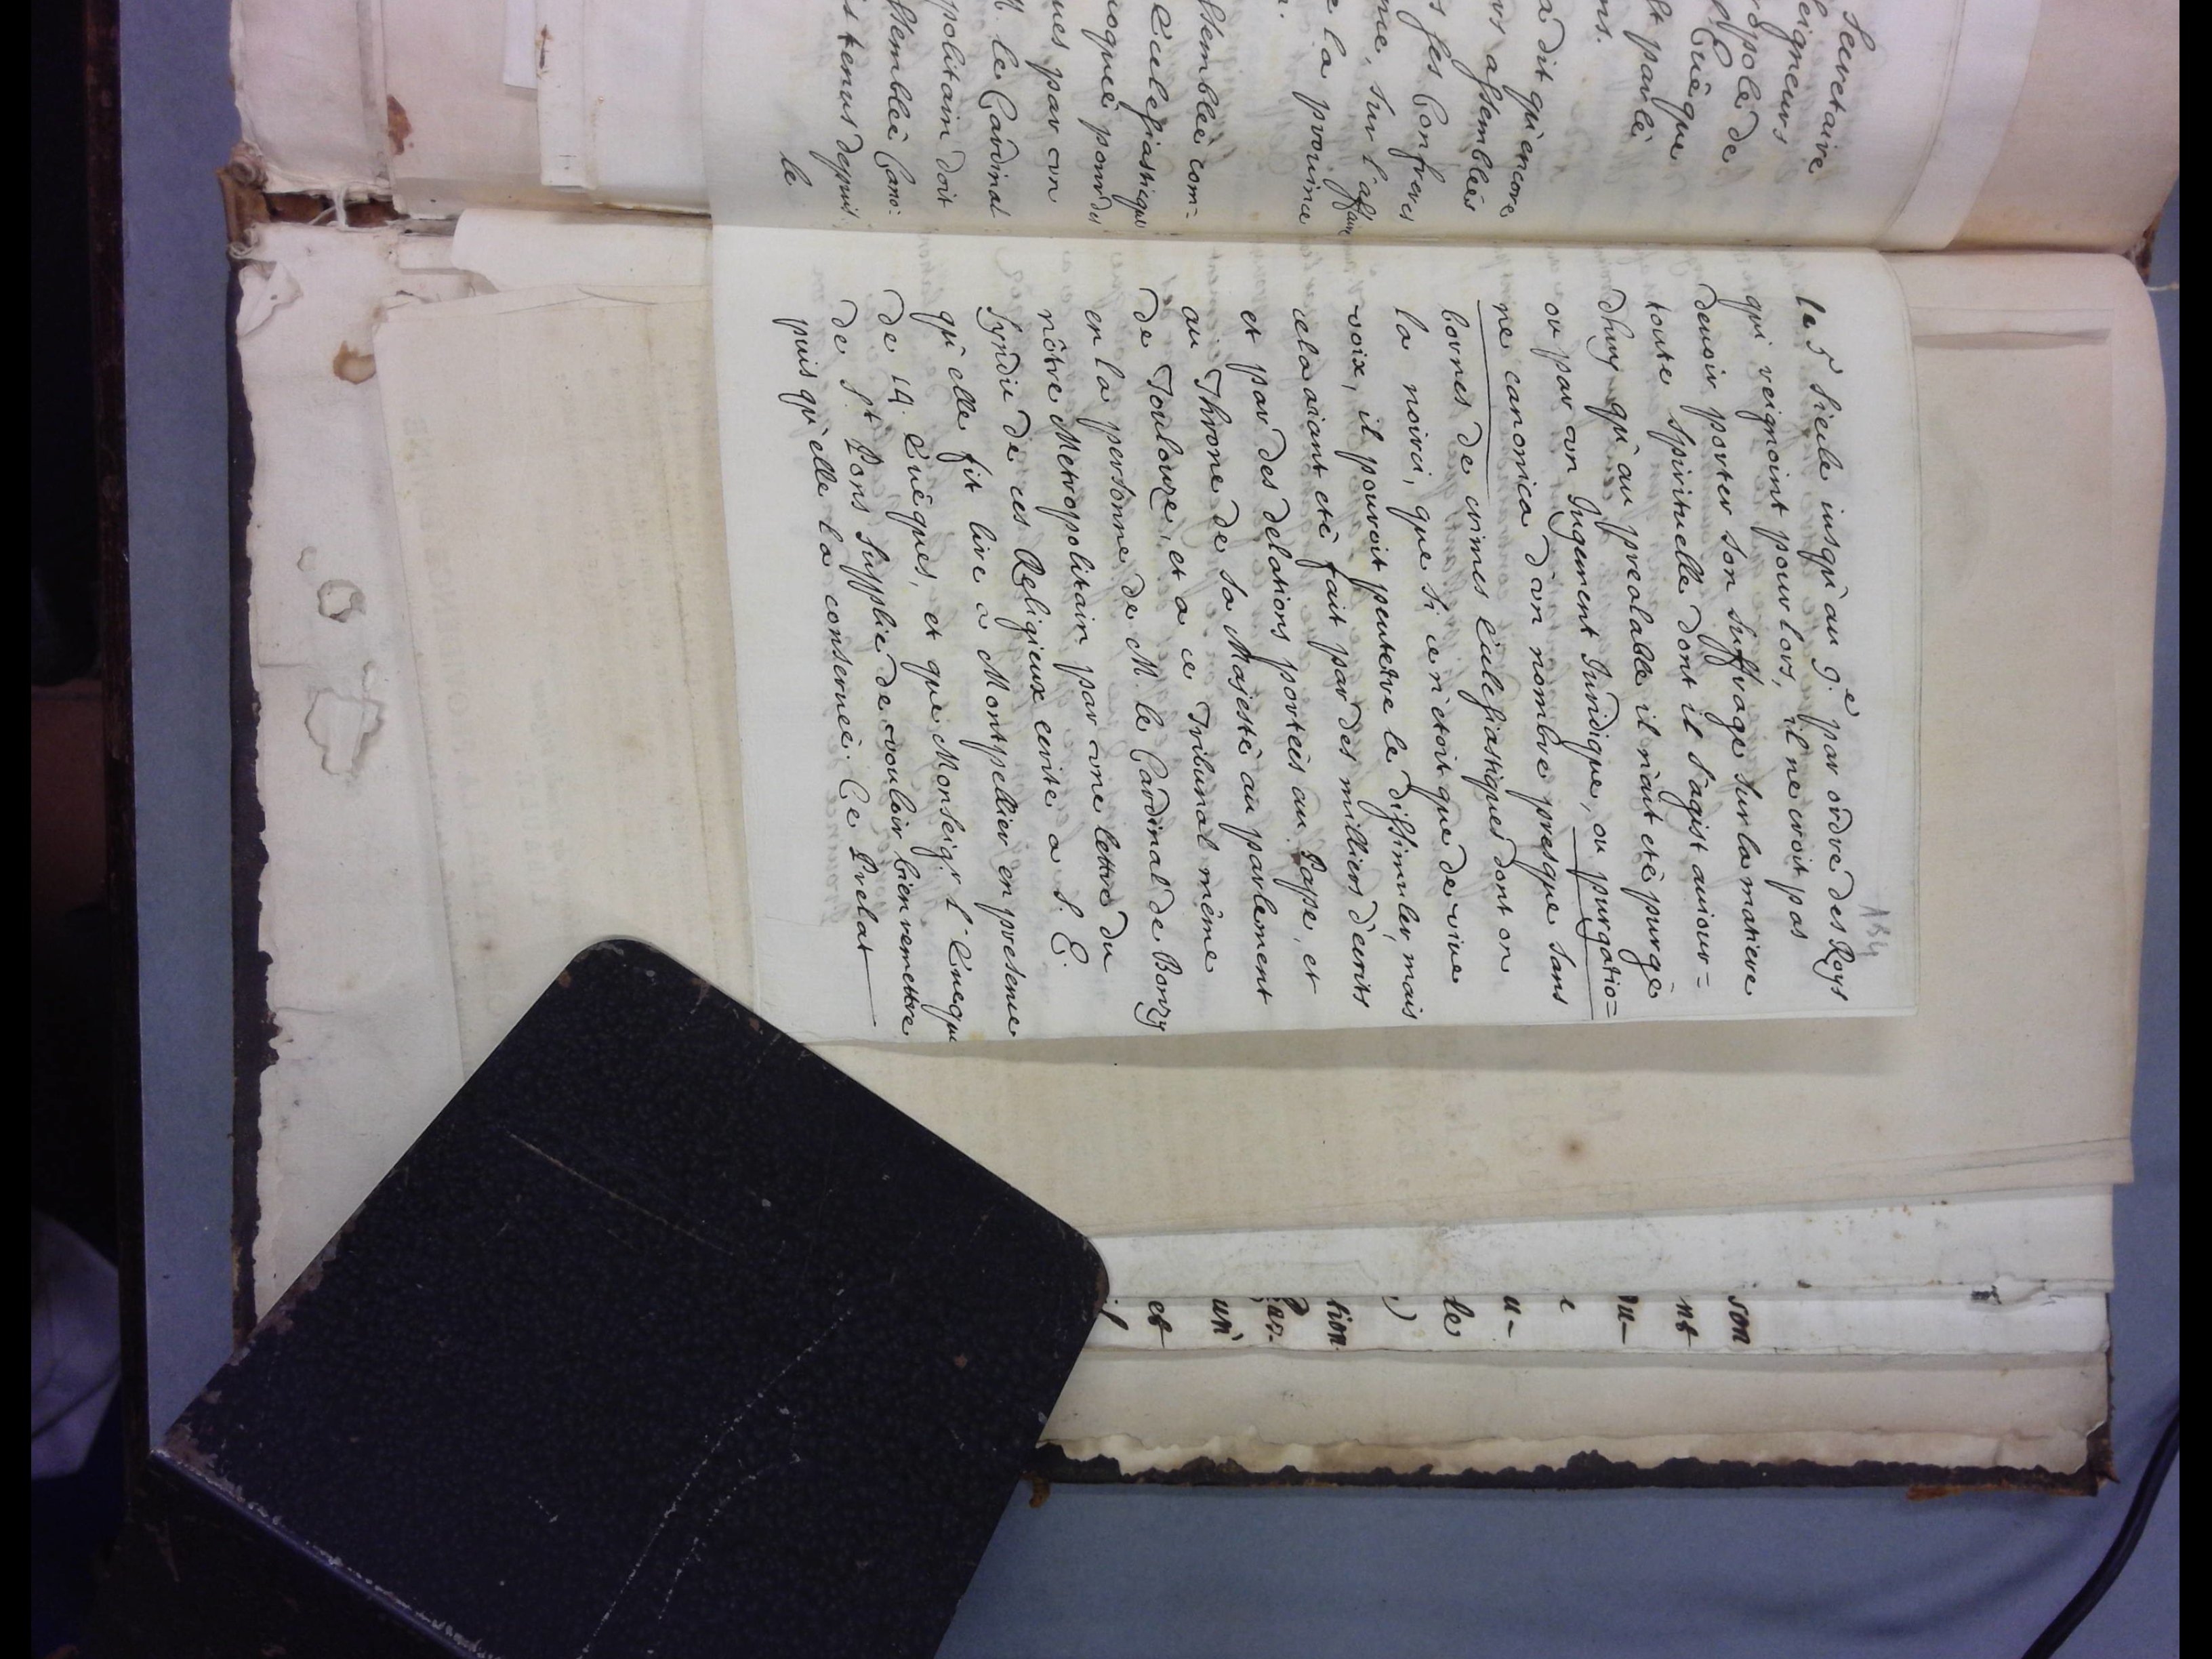 Secretaire
seigneurs
ppole de
Evêque
st parlé
ns.
a dit qu'encore
rs assemblées
s ses Confreres
me, sur l'affaire
e la province
.
ssemblée com=
Ecclesiastique
ioqué pour des
ues par un
M. le Cardinal
politain doit
ssemblée Cano=
s tenus depuis
le
184
le 5 siecle iusqu'au 9.e par ordre des Roys
qui reignoint pour lors, il ne croit pas
devoir porter son suffrage sur la matiere
toute spirituelle dont il s'agist auiour=
dhuy qu'au prealable il n'ait eté purgé
ou par un Iugement Iuridique, ou purgatio=
ne canonica d'un nombre presque sans
bornes de crimes Ecclesiastiques dont on
la noirci, que si ce n'etoit que de vive
voix, il pouroit peutetre le dissimuler, mais
cela aiant eté fait par des milliers d'ecrits
et par des delations portées au Pape, et
au Throne de sa Majesté au parlement
de Toulouze, et a ce Tribunal même
en la personne de M. le Cardinal de Bonzy
nôtre Metropolitain par une lettre du
Syndic de ces Religieux ecrite a S. E.
qu'elle fit lire a Montpellier en presence
de 14. Evêques, et que Monseigr l'Eveque
de St Pons supplie de vouloir bien remettre
puis qu'elle la conservée. Ce Prelat
son
nt
u-
e
u-
le
)
tion
Par-
un
et